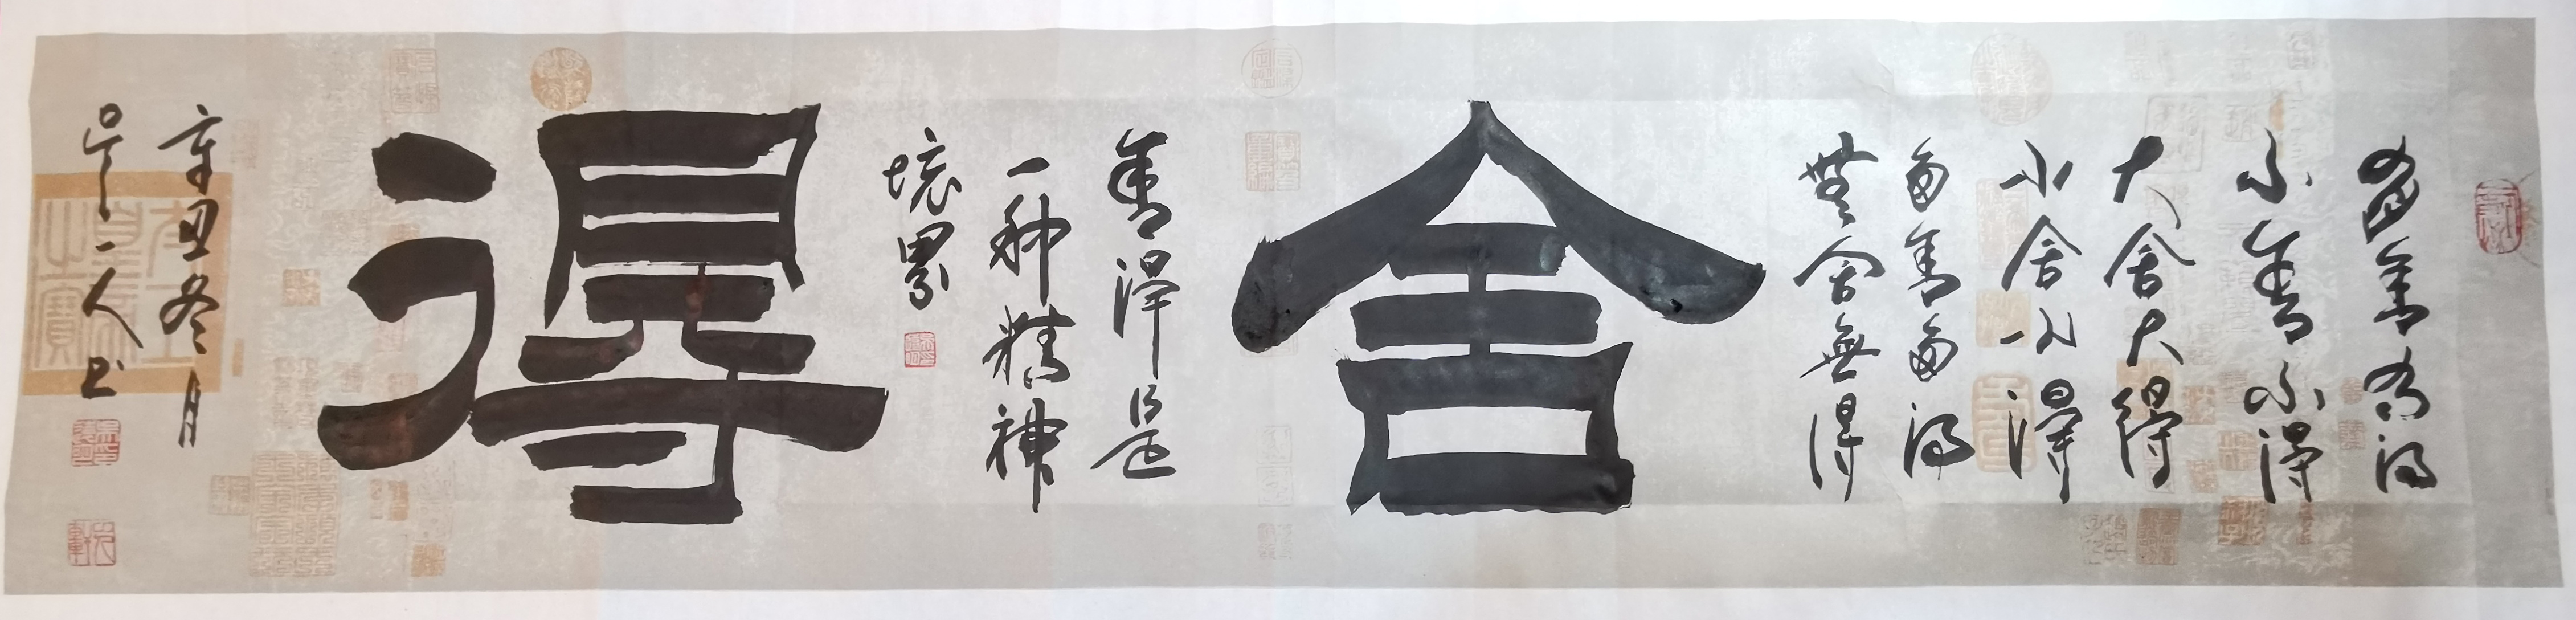 有舍有得
不舍不得
大舍大得
小舍小得
多舍多得
無舍無得
舍
舍得是
一种精神
境界
得
辛丑冬月
一人书